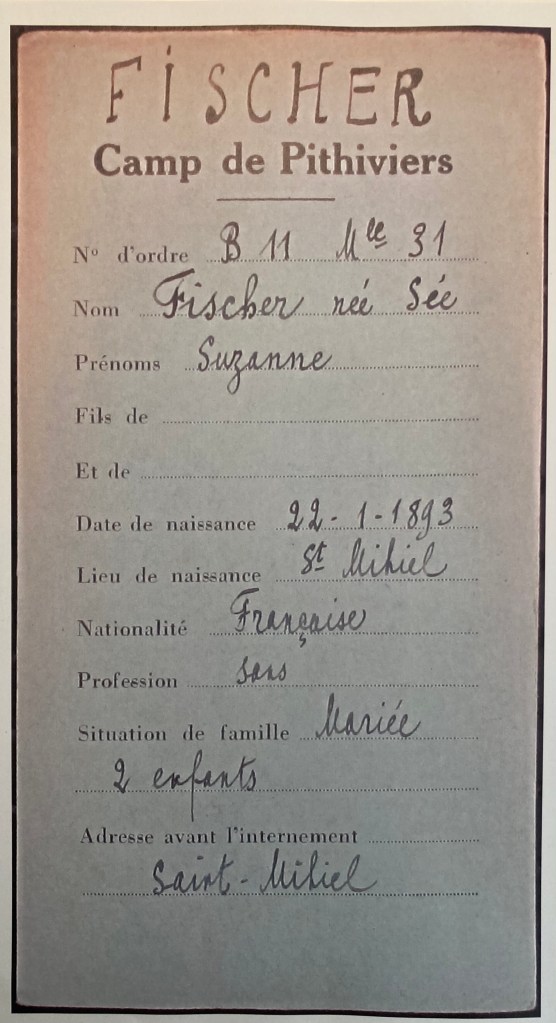 FISCHER
Camp de Pithiviers
No d'ordre B 11 Mle 31
Nom Fischer née Sée
Prénoms Suzanne
Fils de
Et de
Date de naissance 22-1-1893
Lieu de naissance St Mihiel
Nationalité Française
Profession sans
Situation de famille Mariée
2 enfants
Adresse avant l'internement
Saint-Mihiel